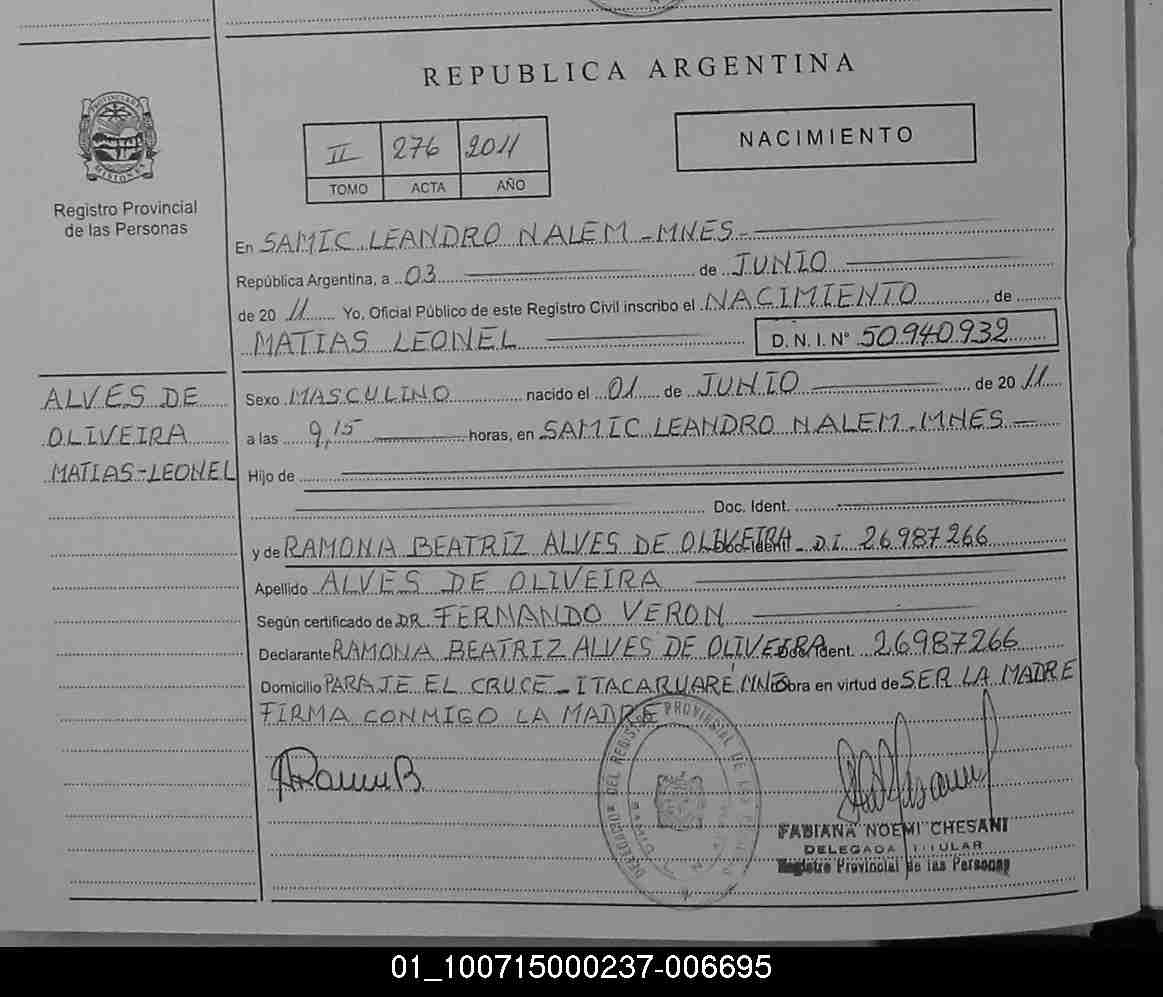 REPUBLICA ARGENTINA
PROVINCIA DE MISIONES
II 276 2011
TOMO ACTA AÑO
NACIMIENTO
Registro Provincial
de las Personas
En SAMIC LEANDRO N ALEM - MNES -
República Argentina, a 03 de JUNIO
de 20 11 Yo, Oficial Público de este Registro Civil inscribo el NACIMIENTO de
MATIAS LEONEL D.N.I. Nº 50940932
ALVES DE
OLIVEIRA
MATIAS-LEONEL
Sexo MASCULINO nacido el 01 de JUNIO de 20 11
a las 9,15 horas, en SAMIC LEANDRO N ALEM - MNES -
Hijo de
Doc. Ident.
y de RAMONA BEATRIZ ALVES DE OLIVEIRA Doc. Ident. - D.I. 26987266
Apellido ALVES DE OLIVEIRA
Según certificado de DR. FERNANDO VERON
Declarante RAMONA BEATRIZ ALVES DE OLIVEIRA Doc. Ident. 26987266
Domicilio PARAJE EL CRUCE - ITACARUARÉ MNES Obra en virtud de SER LA MADRE
FIRMA CONMIGO LA MADRE
FABIANA NOEMI CHESANI
DELEGADA TITULAR
Registro Provincial de las Personas
01_100715000237-006695